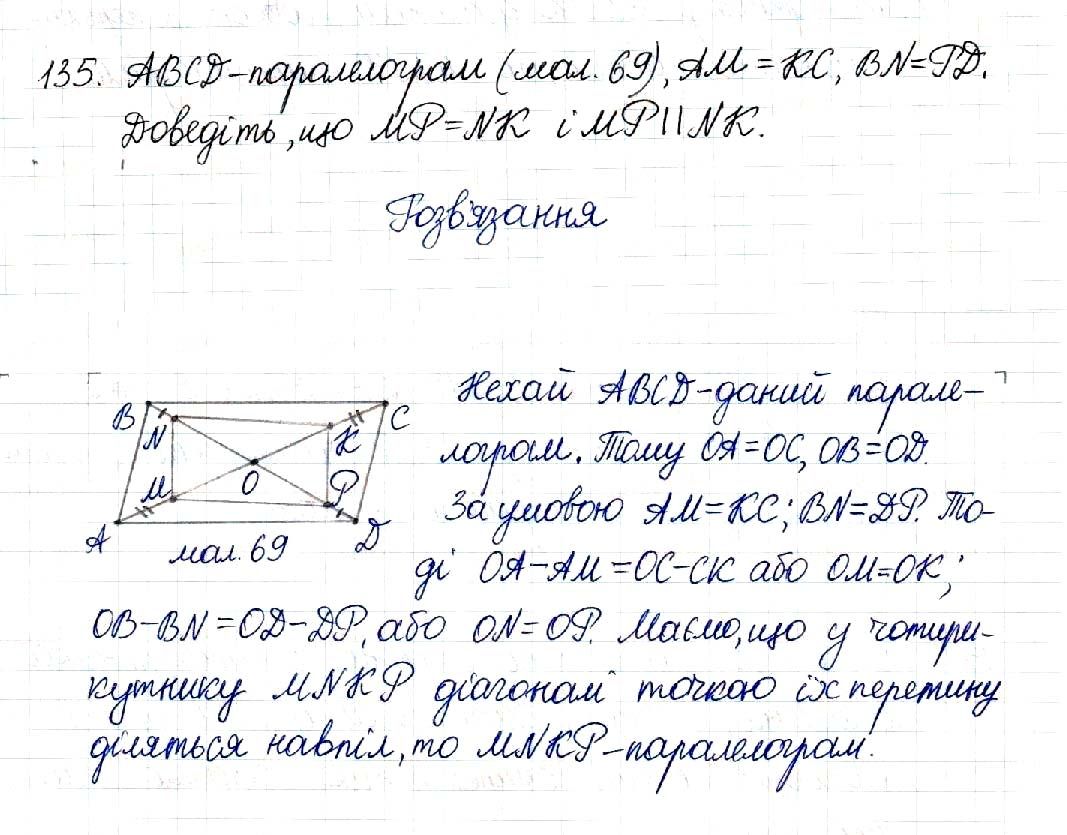 135. ABCD-паралелограм (мал. 69), AM = KC, BN=PD.
Доведіть, що MP=NK і MP||NK.
Розв'язання
Нехай ABCD-даний парале-
лограм. Тому OA=OC, OB=OD.
За умовою AM=KC; BN=DP. То-
ді OA-AM=OC-CK або OM=OK;
OB-BN=OD-DP, або ON=OP. Маємо, що у чотири-
кутнику MNKP діагоналі точкою їх перетину
діляться навпіл, то MNKP-паралелограм.
B
C
N
K
O
M
P
A
D
мал. 69